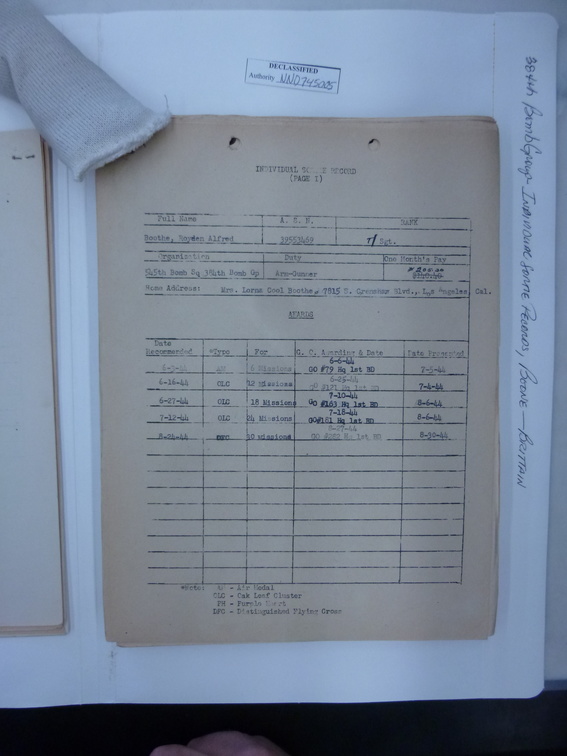 DECLASSIFIED
Authority NND 745005
384th Bomb Group - Individual Sortie Records, Boone - Brittain
INDIVIDUAL RECORD
(PAGE 1)
Full Name A. S. N. RANK
Boothe, Royden Alfred 39553469 T/ Sgt.
Organization Duty One Month's Pay
545th Bomb Sq 384th Bomb Gp Arm-Gunner
Home Address: Mrs. Lorna Cool Boothe, 7815 Blvd., Los Angeles, Cal.
AWARDS
Date Recommended *Type For G. O. Awarding & Date Date Presented
6-3-44 AM 6 Missions 6-6-44 GO #79 Hq 1st BD 7-5-44
6-16-44 OLC 12 Missions 6-25-44 GO Hq 1st BD 7-4-44
6-27-44 OLC 18 Missions 7-10-44 GO #163 Hq 1st BD 8-6-44
7-12-44 OLC 24 Missions 7-18-44 GO#181 Hq 1st BD 8-6-44
8-24-44 DFC 30 missions 8-27-44 GO Hq 1st BD 8-30-44
*Note: AM - Air Medal
OLC - Oak Leaf Cluster
PH - Purple Heart
DFC - Distinguished Flying Cross